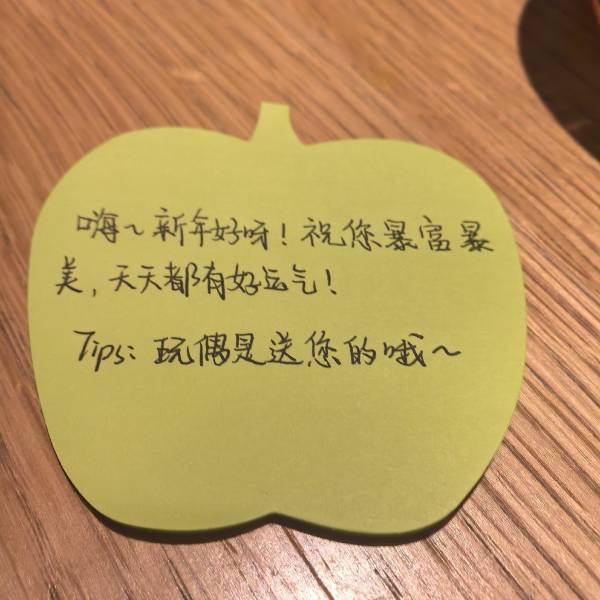 嗨～新年好呀！祝您暴富暴
美，天天都有好运气！
Tips：玩偶是送您的哦～